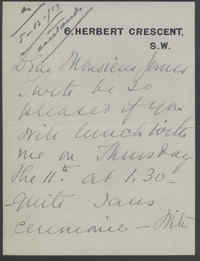 6, HERBERT CRESCENT,
S.W.
Dear Monsieur
I will be so
pleased if you
will lunch with
me on Thursday
the 11th at 1.30 -
Quite sans
ceremonie -